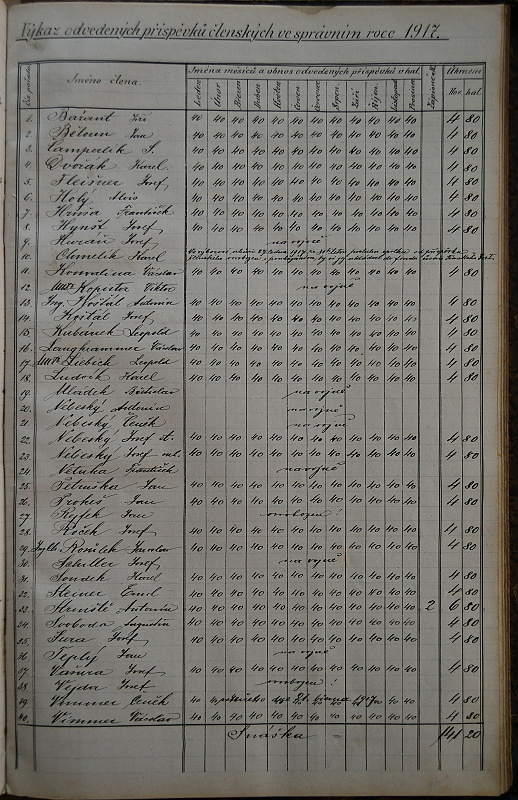 Výkaz odvedených příspěvků členských ve správním roce 1917.
Jméno člena
Jména měsíců a obnos odvedených příspěvků v hal.
Leden Únor Březen Duben Květen Červen Červenec Srpen Září Říjen Listopad Prosinec
Úhrnem
Kor. hal.
1. Bařant Jiří 40 40 40 40 40 40 40 40 40 40 40 40 4 80
2. Běloun 40 40 40 40 40 40 40 40 40 40 40 40 4 80
3. 40 40 40 40 40 40 40 40 40 40 40 40 4 80
4. Dvořák Karel 40 40 40 40 40 40 40 40 40 40 40 40 4 80
5. Fleišner Josef 40 40 40 40 40 40 40 40 40 40 40 40 4 80
6. Holý Alois 40 40 40 40 40 40 40 40 40 40 40 40 4 80
7. František 40 40 40 40 40 40 40 40 40 40 40 40 4 80
8. Hynšt Josef 40 40 40 40 40 40 40 40 40 40 40 40 4 80
9. Josef na vojně
10. Chmelík Karel
11. Konvalina Václav 40 40 40 40 40 40 40 40 40 40 40 40 4 80
12. Viktor na vojně
13. Ing. Košťál Antonín 40 40 40 40 40 40 40 40 40 40 40 40 4 80
14. Košťál Josef 40 40 40 40 40 40 40 40 40 40 40 40 4 80
15. Kubánek Leopold 40 40 40 40 40 40 40 40 40 40 40 40 4 80
16. Langhammer Václav 40 40 40 40 40 40 40 40 40 40 40 40 4 80
17. Liebich Leopold 40 40 40 40 40 40 40 40 40 40 40 40 4 80
18. Ludvík Karel 40 40 40 40 40 40 40 40 40 40 40 40 4 80
19. Mládek Břetislav na vojně
20. Nebeský Antonín na vojně
21. Nebeský Čeněk na vojně
22. Nebeský Josef st. 40 40 40 40 40 40 40 40 40 40 40 40 4 80
23. Nebeský Josef ml. 40 40 40 40 40 40 40 40 40 40 40 40 4 80
24. Netuka František na vojně
25. Petruška Jan 40 40 40 40 40 40 40 40 40 40 40 40 4 80
26. Prokeš Jan 40 40 40 40 40 40 40 40 40 40 40 40 4 80
27. Jan osvobozen!
28. Roček Josef 40 40 40 40 40 40 40 40 40 40 40 40 4 80
29. Jaroslav 40 40 40 40 40 40 40 40 40 40 40 40 4 80
30. Schiller Josef na vojně
31. Soudek Karel 40 40 40 40 40 40 40 40 40 40 40 40 4 80
32. Steiner Emil 40 40 40 40 40 40 40 40 40 40 40 40 4 80
33. Antonín 40 40 40 40 40 40 40 40 40 40 40 40 2 6 80
34. Svoboda Augustin 40 40 40 40 40 40 40 40 40 40 40 40 4 80
35. Šura Josef 40 40 40 40 40 40 40 40 40 40 40 40 4 80
36. Teplý Jan na vojně
37. Vašura Josef 40 40 40 40 40 40 40 40 40 40 40 40 4 80
38. Vejda Josef osvobozen!
39. Vimmer Čeněk 40 června 1917 40 40 4 80
40. Vimmer Václav 40 40 40 40 40 40 40 40 40 40 40 40 4 80
Snáška = 141 20